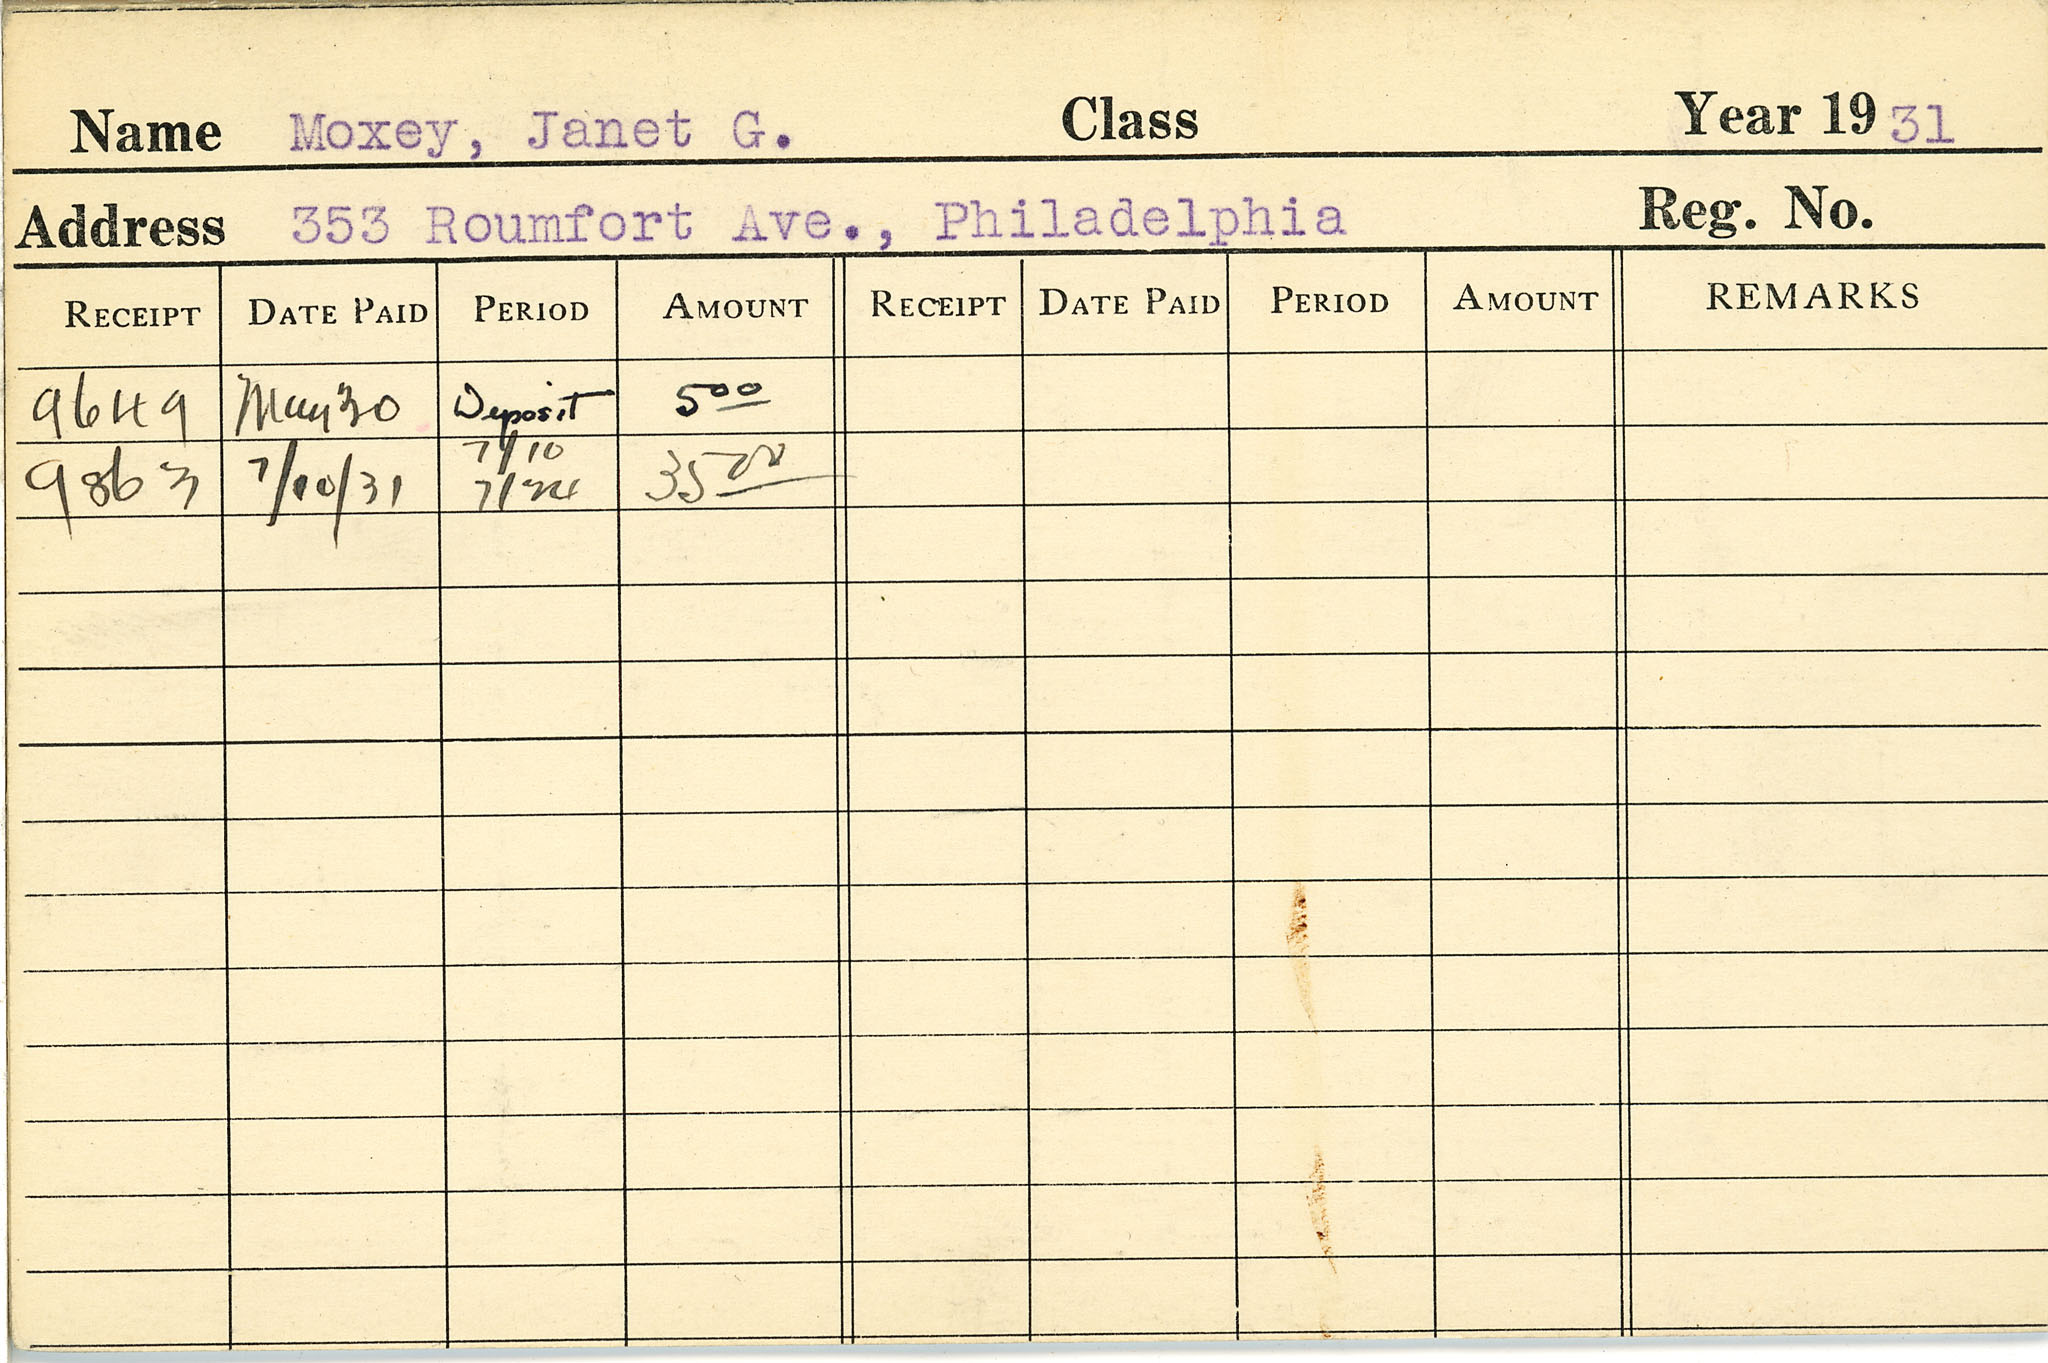 Name Moxey, Janet G. Class Year 19 31
Address 353 Roumfort Ave., Philadelphia Reg. No.
RECEIPT DATE PAID PERIOD AMOUNT RECEIPT DATE PAID PERIOD AMOUNT REMARKS
9649 May 30 Deposit 5 00
7/10
9863 7/10/31 7/24 35 00